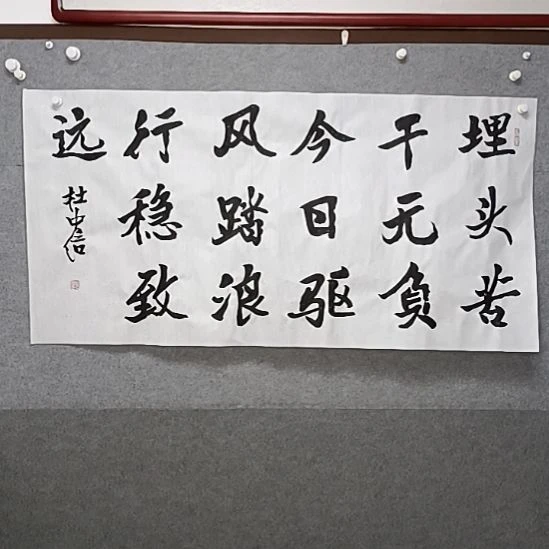 埋头苦
干无负
今日驱
风踏浪
行稳致
远
杜中信